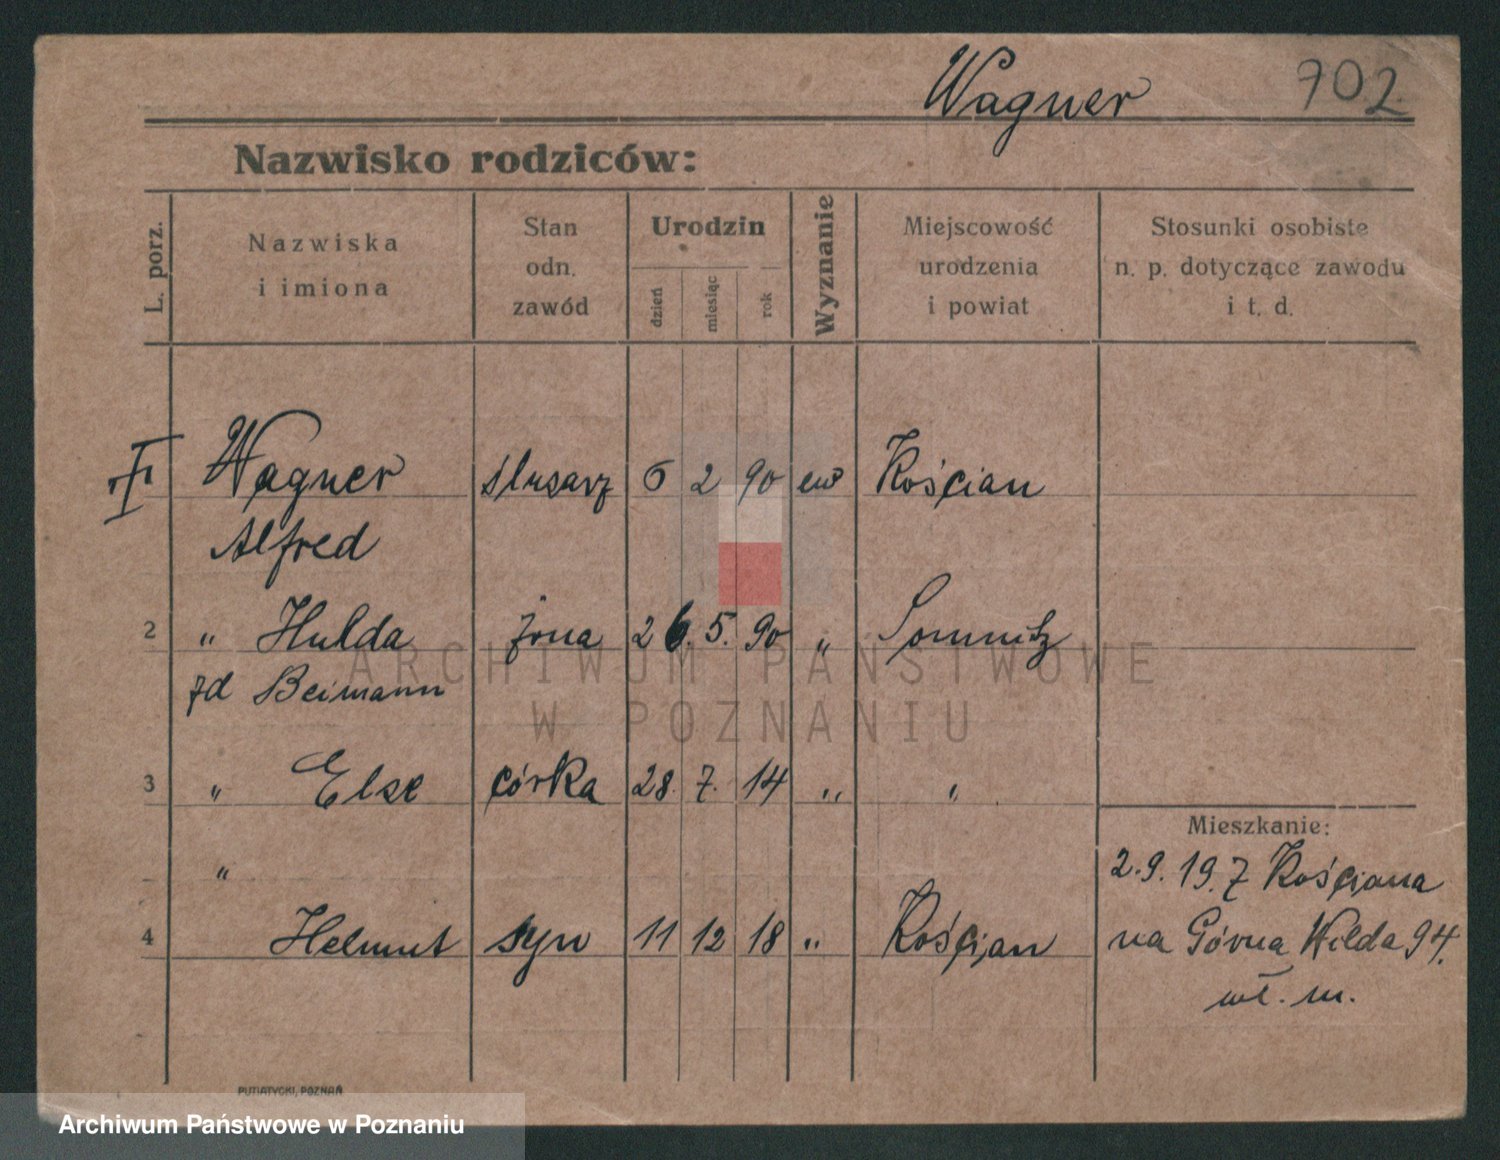 Wagner 702
Nazwisko rodziców:
L. porz.
Nazwiska
i imiona
Stan
odn.
zawód
Urodzin
dzień miesiąc rok
Wyznanie
Miejscowość
urodzenia
i powiat
Stosunki osobiste
n. p. dotyczące zawodu
i t. d.
Wagner ślusarz 6 2 90 ew Kościan
Alfred
2 " Hulda żona 26. 5. 90 " Somnitz
zd Beimann
3 " Else córka 28. 7. 14 " "
"
4 Helmut syn 11 12 18 " Kościan
Mieszkanie:
2.9.19. z Kościana
na Górna Wilda 94.
wł. m.
PUTIATYCKI, POZNAŃ
ARCHIWUM PAŃSTWOWE
W POZNANIU
Archiwum Państwowe w Poznaniu